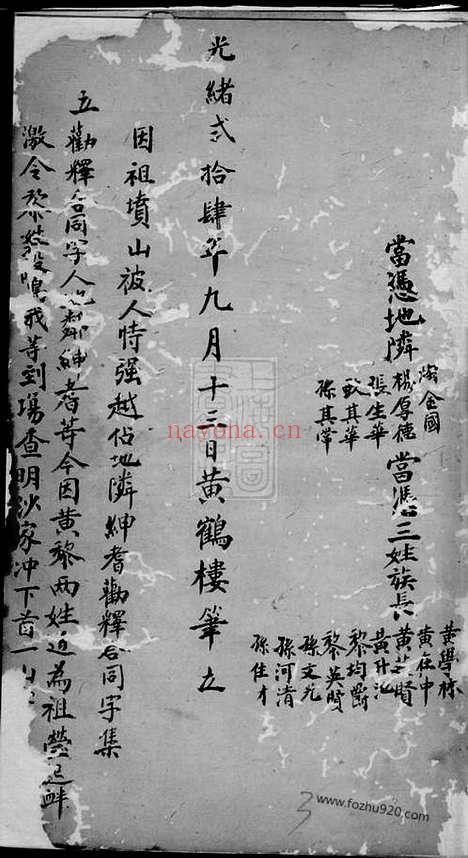 當憑地隣
楊厚德
張生華
其華
孫其常
當憑三姓族長
黃學林
黃在中
黃賢
黃升
黎均爵
黎英賢
孫文元
孫河清
孫佳才
光緒弍拾肆年九月十三日黃鶴樓筆立
因祖墳山被人恃强越佔地隣紳耆勸釋合同字集
立勸釋合同字人紳耆等今因黃黎兩姓近為祖塋起衅
激令黎姓投鳴我等到塲查明沙家冲下首一
nayona.cn
www.fozhu920.com
3